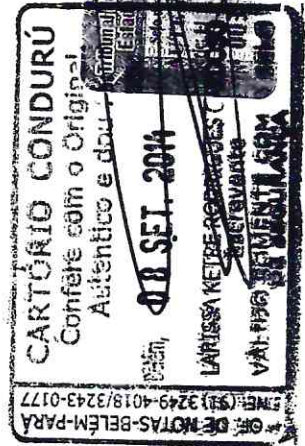 CARTÓRIO CONDURÚ
Confere com o Original
Autentico e dou
Tribunal
Esta
Belém,
08 SET. 2014
LARISSA KETRE RODRIGUES C
Escrevente
VÁLIDO SOMENTE COM
OF. DE NOTAS-BELÉM-PARÁ
NE: (91) 3249-4018/3243-0177